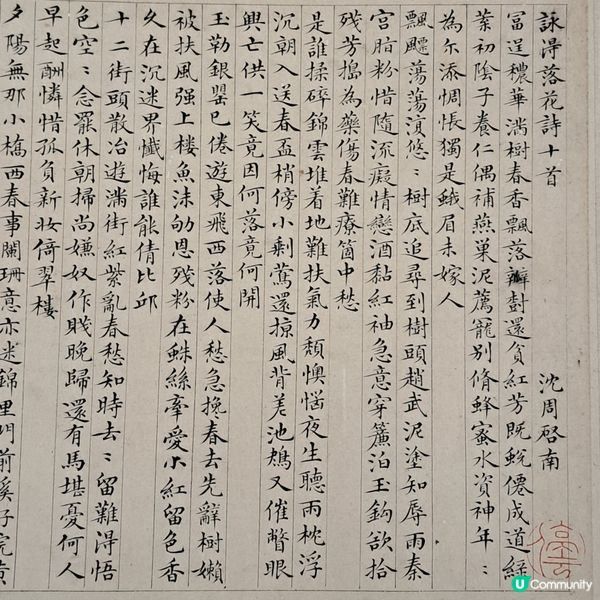 詠淂落花詩十首 沈周啓南
富逞穠華滿樹春香飄落瓣樹還貧紅芳既蛻僊成道綠
葉初陰子養仁偶補燕巢泥薦寵別脩蜂蜜水資神年〻
為尔添惆悵獨是蛾眉未嫁人
飄飄蕩蕩復悠〻樹底追尋到樹頭趙武泥塗知辱雨秦
宮脂粉惜隨流癡情戀酒黏紅袖急意穿簾泊玉鉤欲拾
殘芳搗為藥傷春難療箇中愁
是誰揉碎錦雲堆着地難扶氣力頹懊惱夜生聽雨枕浮
沉朝入送春盃梢傍小剩蔫還掠風背差池鴆又催瞥眼
興亡供一笑竟因何落竟何開
玉勒銀罌已倦遊東飛西落使人愁急攙春去先辭樹嬾
被扶風强上樓魚沫劬恩殘粉在蛛絲牽愛小紅留色香
久在沉迷界懺悔誰能倩比邱
十二街頭散冶遊滿街紅紫亂春愁知時去〻留難淂悟
色空〻念罷休朝掃尚嫌奴作賤晚歸還有馬堪憂何人
早起酬憐惜孤負新妝倚翠樓
夕陽無那小橋西春事闌珊意亦迷錦里門前溪好浣黃
停雲
U Community